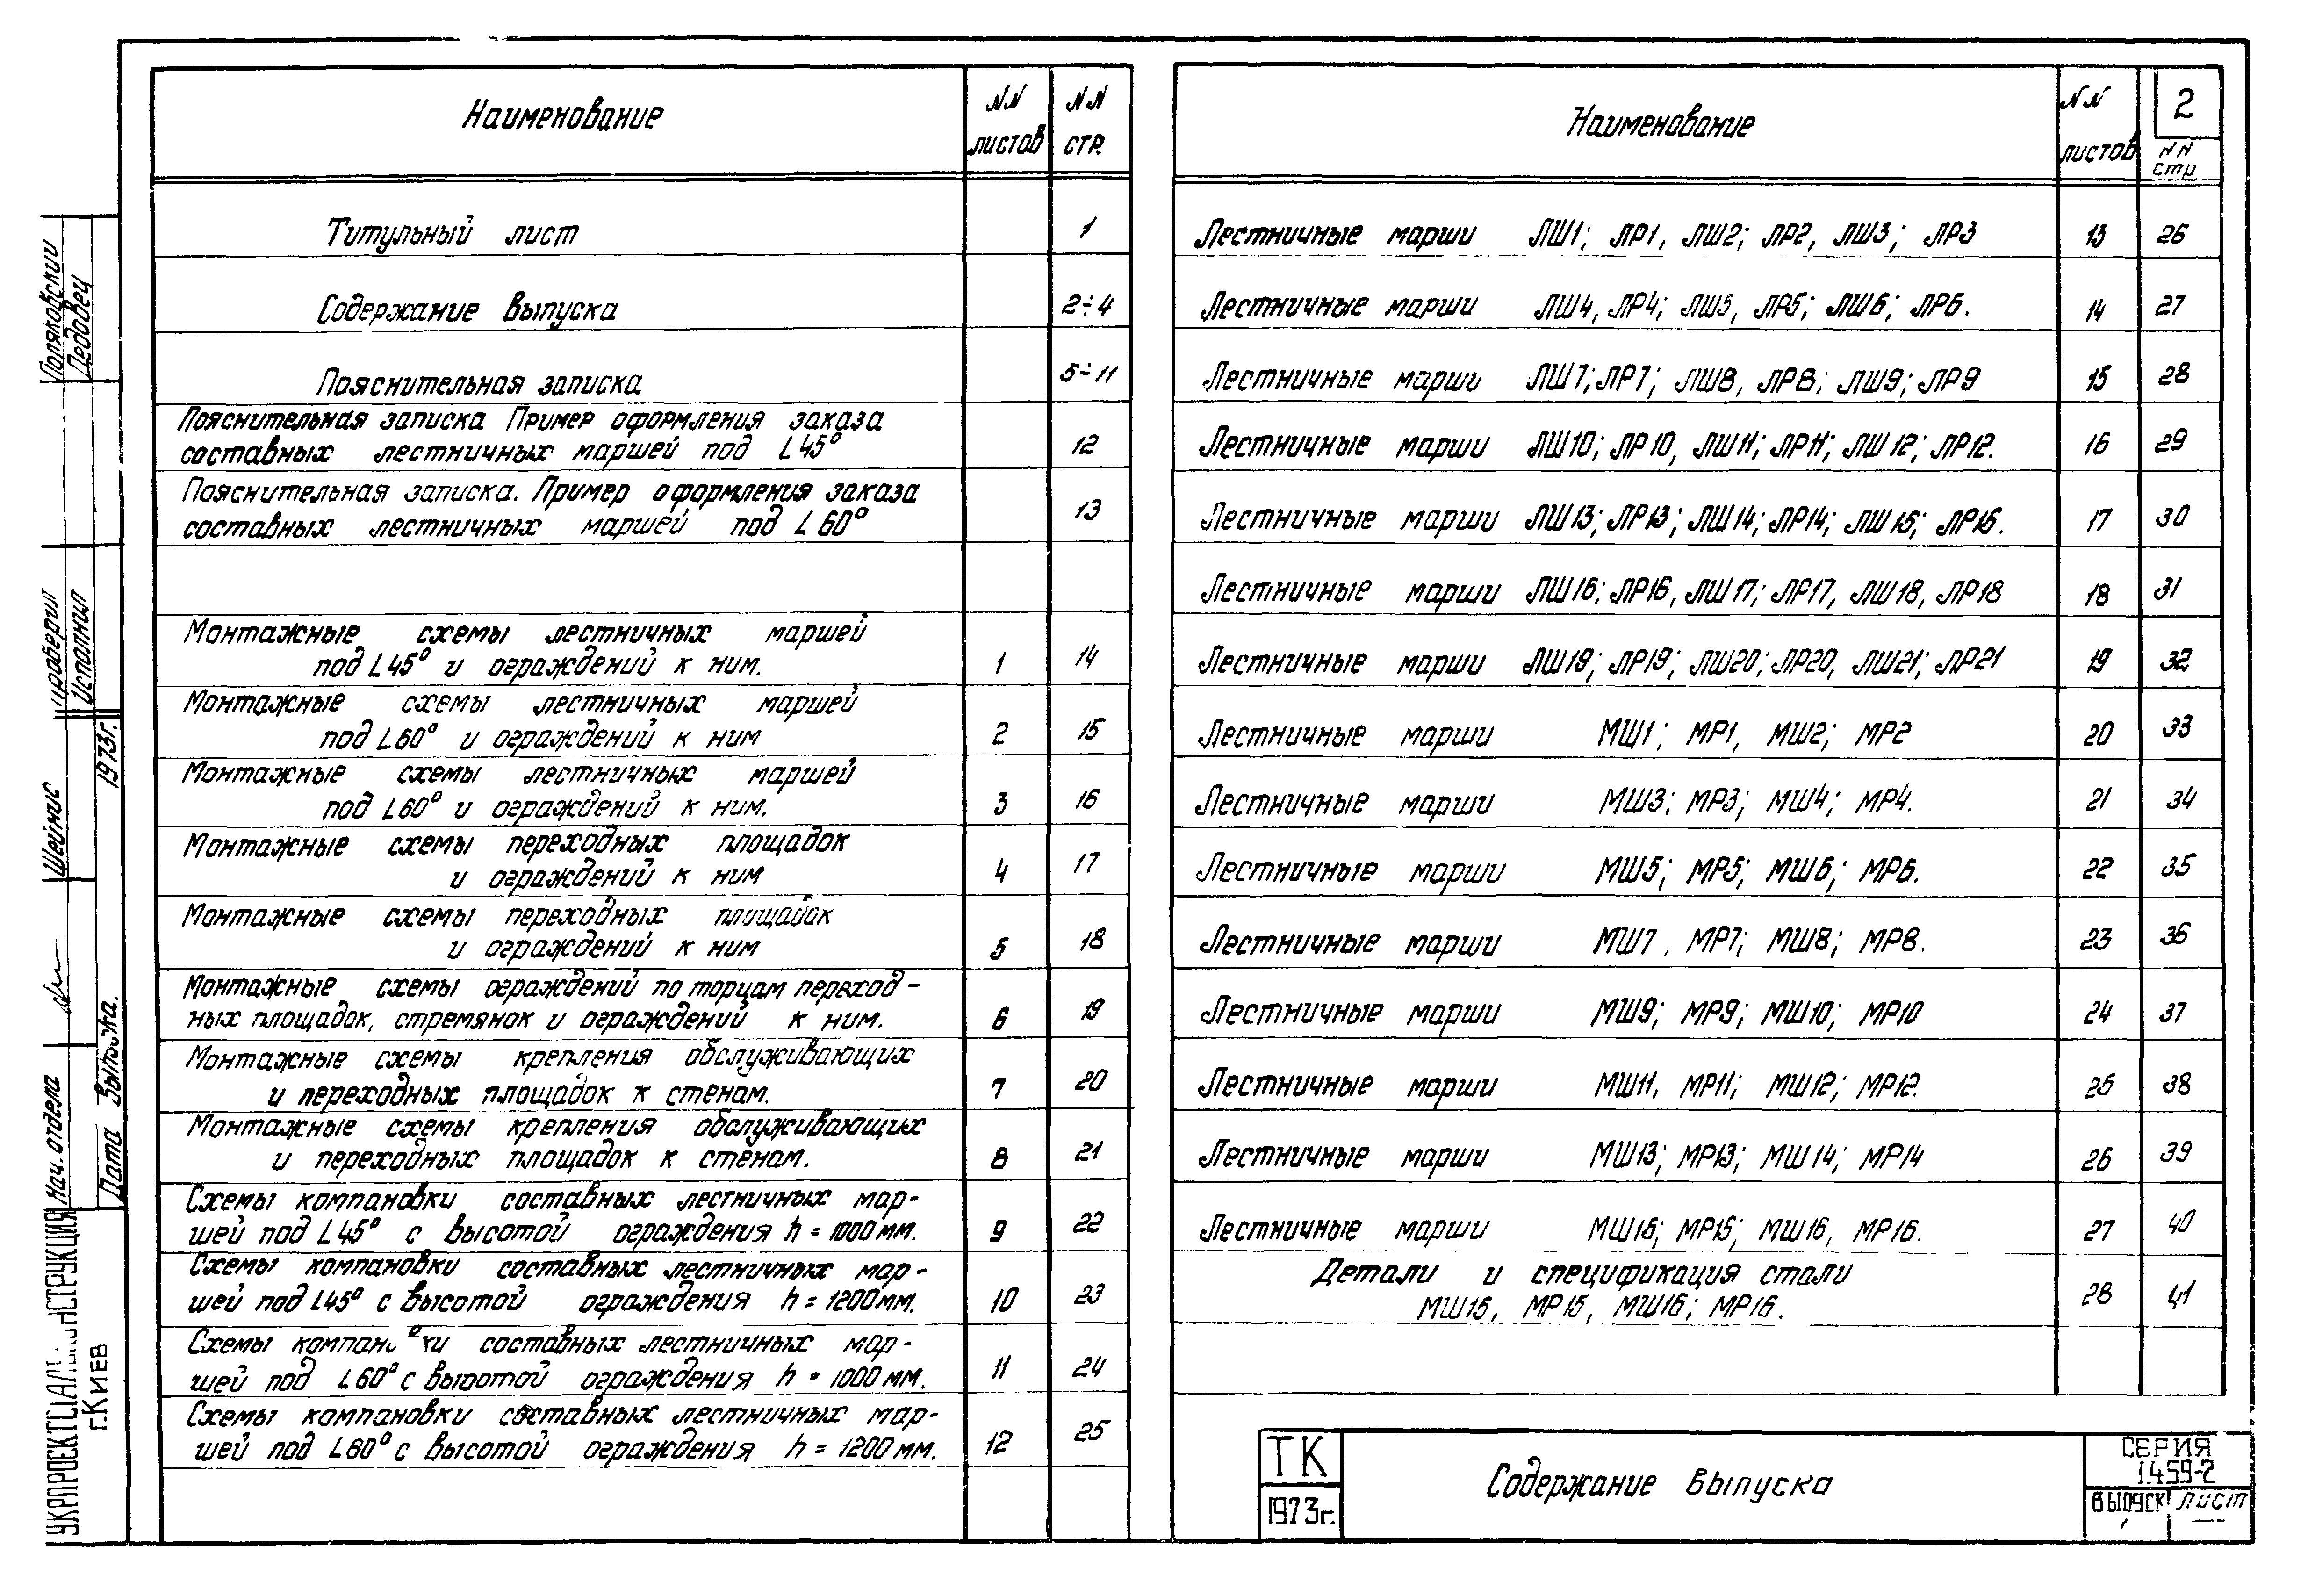 Наименование
NN листов
NN стр.
Титульный лист 1
Содержание выпуска 2÷4
Пояснительная записка 5÷11
Пояснительная записка Пример оформления заказа
составных лестничных маршей под L45° 12
Пояснительная записка. Пример оформления заказа
составных лестничных маршей под L60° 13
Монтажные схемы лестничных маршей
под L45° и ограждений к ним. 1 14
Монтажные схемы лестничных маршей
под L60° и ограждений к ним 2 15
Монтажные схемы лестничных маршей
под L60° и ограждений к ним. 3 16
Монтажные схемы переходных площадок
и ограждений к ним 4 17
Монтажные схемы переходных площадок
и ограждений к ним 5 18
Монтажные схемы ограждений по торцам переход-
ных площадок, стремянок и ограждений к ним. 6 19
Монтажные схемы крепления обслуживающих
и переходных площадок к стенам. 7 20
Монтажные схемы крепления обслуживающих
и переходных площадок к стенам. 8 21
Схемы компановки составных лестничных мар-
шей под L45° с высотой ограждения h = 1000 мм. 9 22
Схемы компановки составных лестничных мар-
шей под L45° с высотой ограждения h = 1200 мм. 10 23
Схемы компановки составных лестничных мар-
шей под L60° с высотой ограждения h = 1000 мм. 11 24
Схемы компановки составных лестничных мар-
шей под L60° с высотой ограждения h = 1200 мм. 12 25
2
Наименование
NN листов
NN стр
Лестничные марши ЛШ1; ЛР1, ЛШ2; ЛР2, ЛШ3; ЛР3 13 26
Лестничные марши ЛШ4, ЛР4; ЛШ5, ЛР5; ЛШ6; ЛР6. 14 27
Лестничные марши ЛШ7; ЛР7; ЛШ8, ЛР8; ЛШ9; ЛР9 15 28
Лестничные марши ЛШ10; ЛР10, ЛШ11; ЛР11; ЛШ12; ЛР12. 16 29
Лестничные марши ЛШ13; ЛР13; ЛШ14; ЛР14; ЛШ15; ЛР15. 17 30
Лестничные марши ЛШ16; ЛР16, ЛШ17; ЛР17, ЛШ18, ЛР18 18 31
Лестничные марши ЛШ19; ЛР19; ЛШ20; ЛР20, ЛШ21; ЛР21 19 32
Лестничные марши МШ1; МР1, МШ2; МР2 20 33
Лестничные марши МШ3; МР3; МШ4; МР4. 21 34
Лестничные марши МШ5; МР5; МШ6; МР6. 22 35
Лестничные марши МШ7, МР7; МШ8; МР8. 23 36
Лестничные марши МШ9; МР9; МШ10; МР10 24 37
Лестничные марши МШ11, МР11; МШ12; МР12. 25 38
Лестничные марши МШ13; МР13; МШ14; МР14 26 39
Лестничные марши МШ15; МР15; МШ16, МР16. 27 40
Детали и спецификация стали
МШ15, МР15, МШ16; МР16. 28 41
ТК
1973г.
Содержание выпуска
СЕРИЯ
1.459-2
ВЫПУСК
Лист
Поляковский
Дедовец
Проверил
Исполнил
Шейнис
1973г.
Нач. отдела
Дата
г.Киев